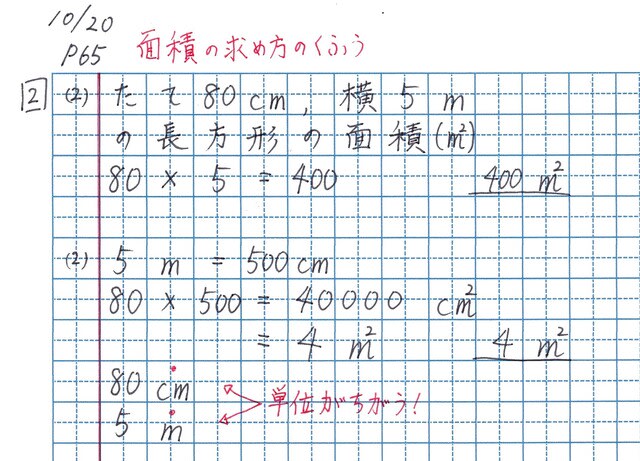 10/20
P65 面積の求め方のくふう
2 (2) たて 80 cm, 横 5 m
の長方形の面積(m²)
80 × 5 = 400 400 m²
(2) 5 m = 500 cm
80 × 500 = 40000 cm²
= 4 m² 4 m²
80 cm
単位がちがう!
5 m